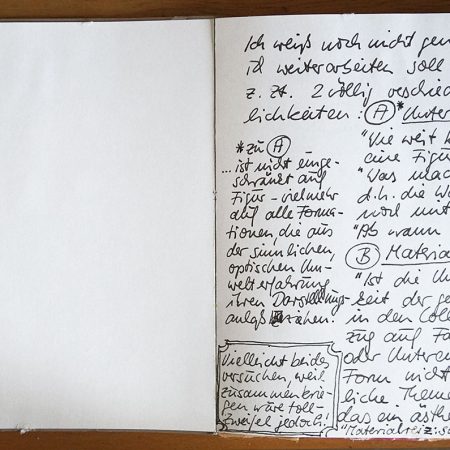 Ich weiß noch nicht gen
ich weiterarbeiten soll
z. Zt. 2 völlig verschied
lichkeiten: (A) * Unter
"Wie weit k
eine Figur
"Was mac
d.h. die W
noch unt
"Ab wann
(B) Material
"Ist die Un
keit der ge
in den Coll
zug auf Fa
oder Unter
Form nicht
liche Theme
das ein ästhe
"Materialreiz: s
* zu (A)
... ist nicht einge-
schränkt auf
Figur – vielmehr
auf alle Forma-
tionen, die aus
der sinnlichen,
optischen Um-
welterfahrung
ihren Darstellungs-
anlaß ziehen.
Vielleicht beides
versuchen, weil
zusammenkrie-
gen wäre toll –
Zweifel jedoch!